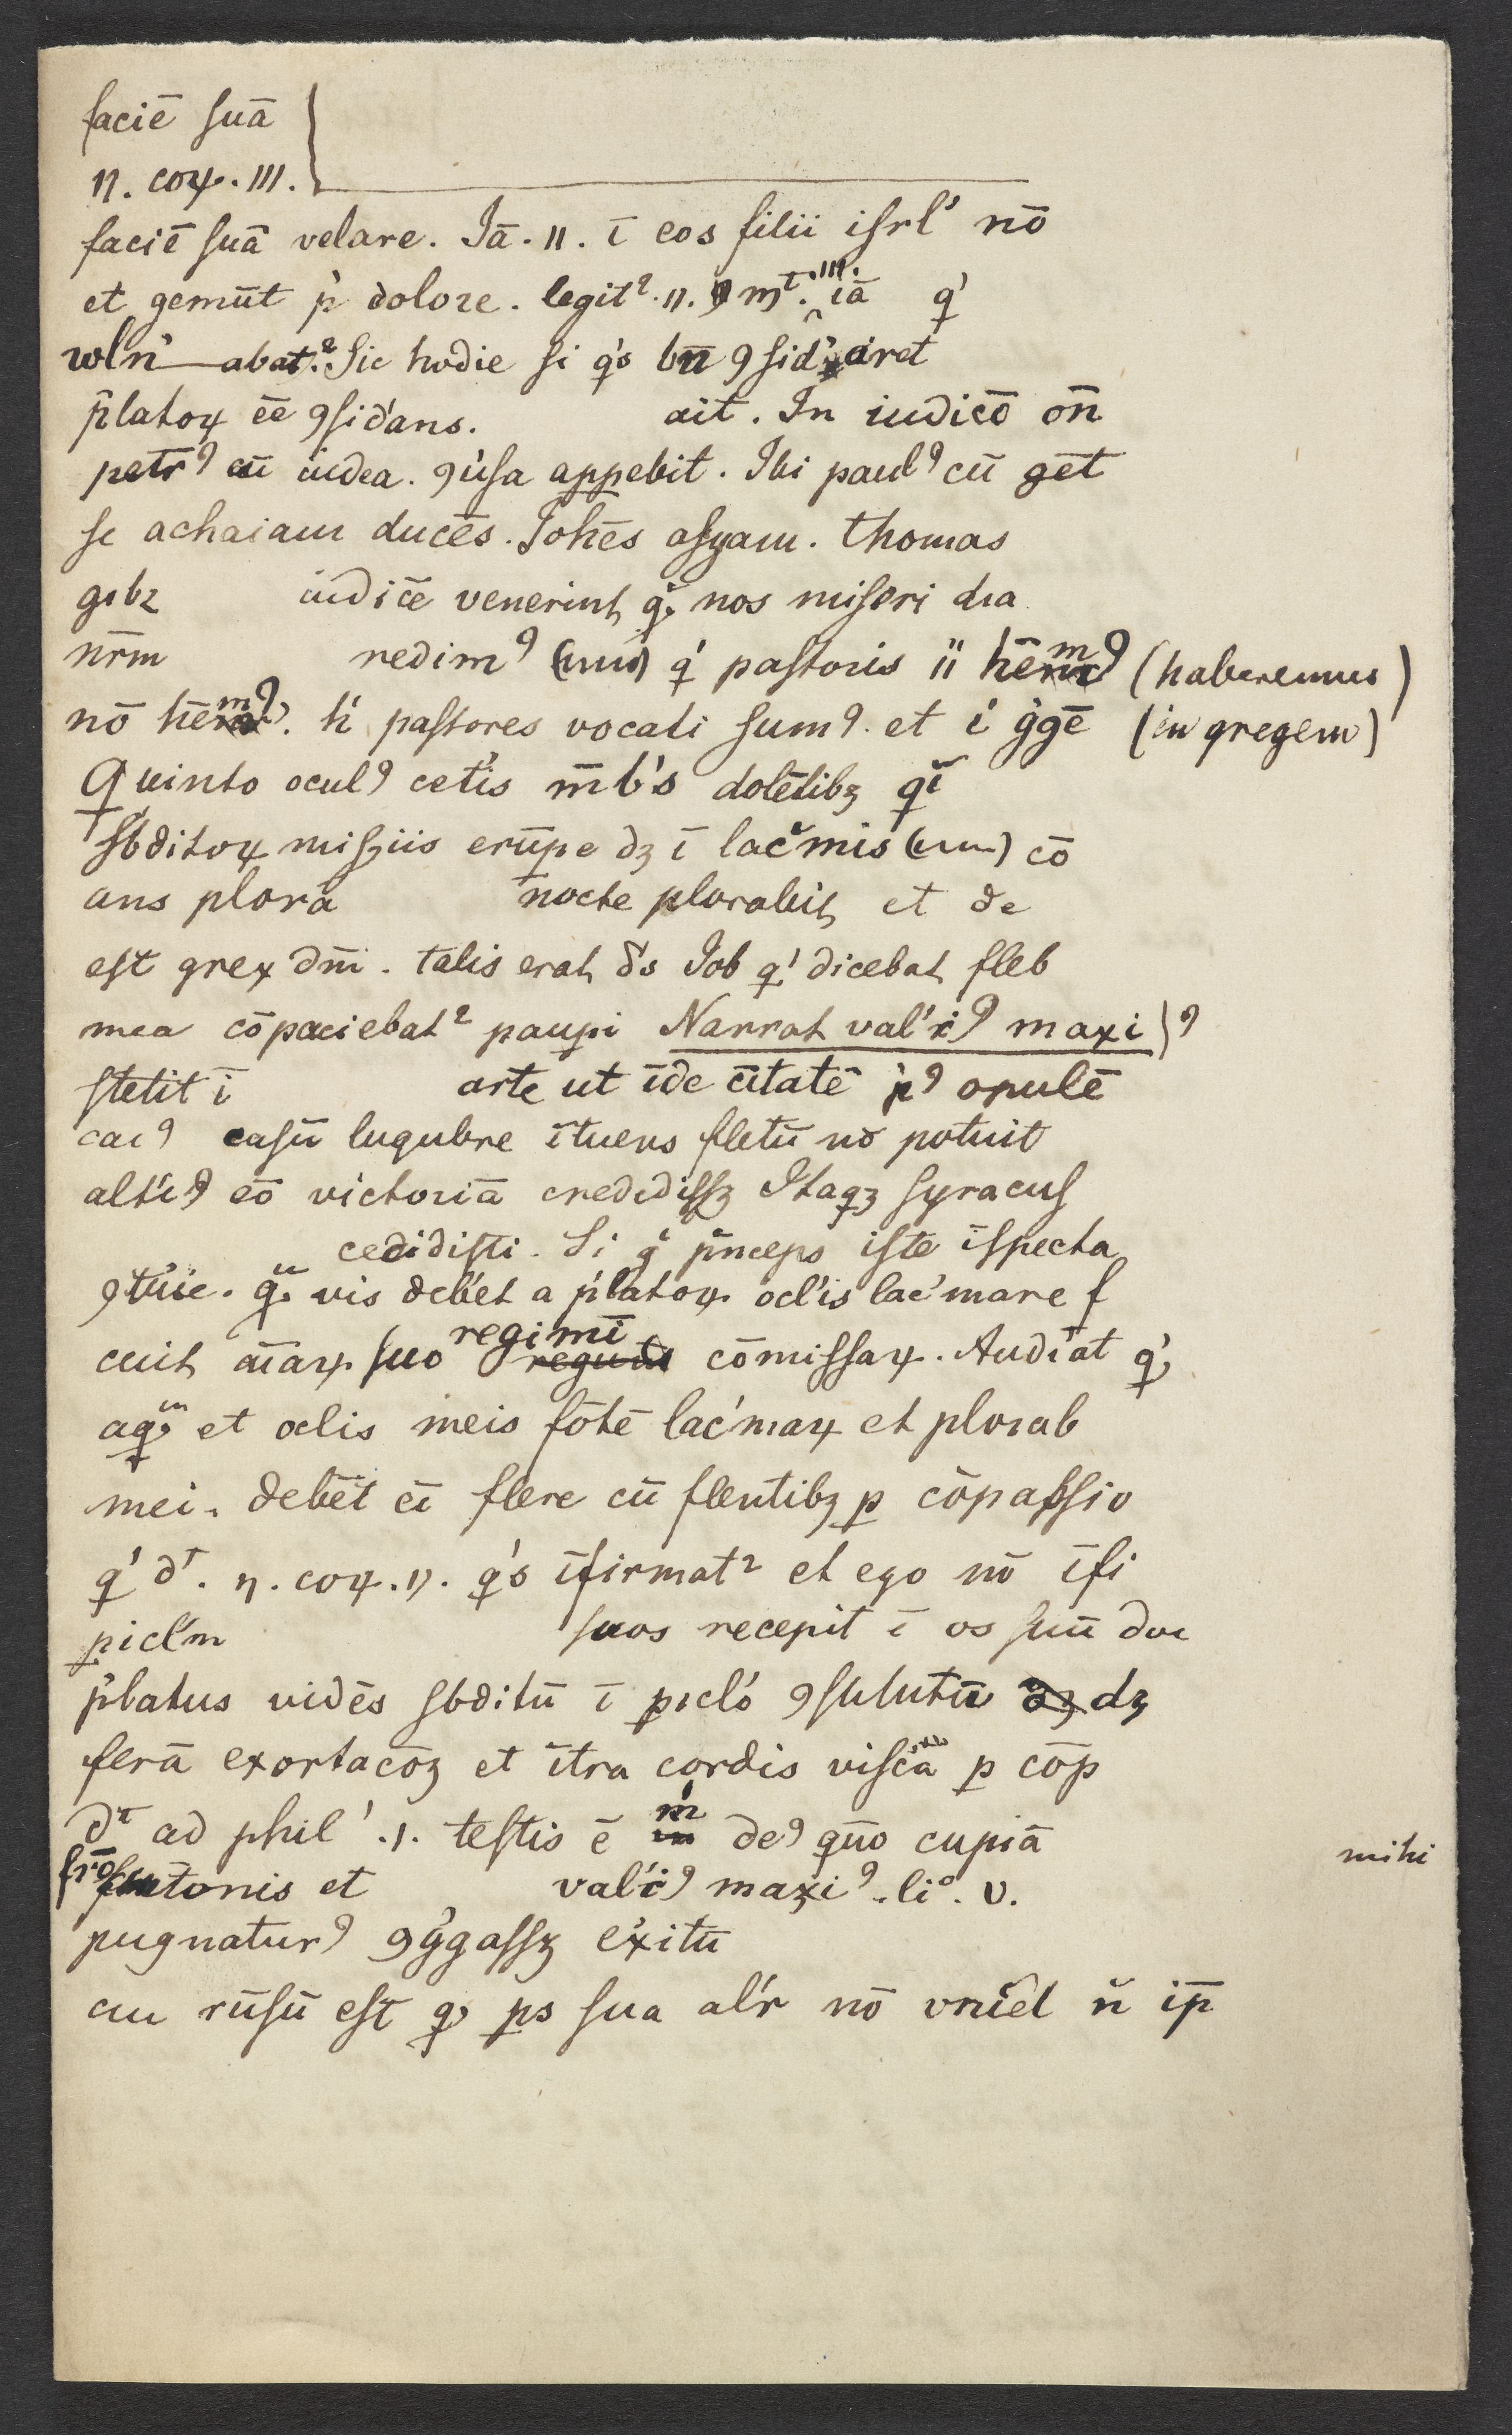 faciē ſuā
II. coꝝ. III.
faciē ſuā velare. Iā. II. ī eos filii iſrl' nō
et gemūt p̄ dolore. legit². II. mt̄. III. iā q'
wl'n' abat². Sic hodie ſi q's bn̄ ꝯſid'aret
p̄latoꝝ ēē ꝯſid'ans. ait. In iudicō on̄
petr̄ꝰ cū iudea. ꝯ'uſa appebit. Ibi paulꝰ cū gēt
ſe achaiam ducēs. Johēs aſyam. thomas
iudicē venerint q̊ nos miſeri
nr̄m redimꝰ q' paſtoris hēmꝰ (haberemus)
nō hēmꝰ. h' paſtores vocati ſumꝰ. et i' g'gē (in gregem)
Quinto oculꝰ cet'is m̄b's dolētibꝫ qi
ſbditoꝝ miſꝫiis erūpe dꝫ ī lac'mis cō
ans plora nocte plorabit et de
eſt grex dn̄i. talis erat b's Iob q' dicebat fleb
mea cōpaciebat² paupi Narrat val'iꝰ maxi ꝰ
ſtetit ī arte ut īde cītatē pꝰ opulē
caiꝰ caſū lugubre ītuens fletū nō potuit
alt'iꝰ eō victoriā credidiſſꝫ Itaqꝫ ſyracuſ
cedidiſti. Si g̊ p̄nceps iſte īſpecta
ꝯtūie. q̊ vis deb'et a p̄latoꝝ ocl'is lac'mare f
cuit aīaꝝ ſuo regimī cōmiſſaꝝ. Audiat q'
aq̊ et oclis meis fōtē lac'maꝝ et plorab
mei. debēt eī flere cū flentibꝫ p cōpaſſio
q' dt. II. coꝝ. II. q's īfirmat² et ego nō īfi
picl'm ſuos recepit ī os ſuū
p̄latus vidēs ſbditū ī picl'o ꝯſtitutū dꝫ
ferā exortacōꝫ et ītra cordis viſc'a p cōp
dt ad phil'. I. teſtis ē m' deꝰ quo cupiā mihi
frōtonis et val'iꝰ maxiꝰ. liº. v.
pugnaturꝰ ꝯg'gaſſꝫ ex'itū
cu rūſū eſt q ps ſua al'r nō n ip̄